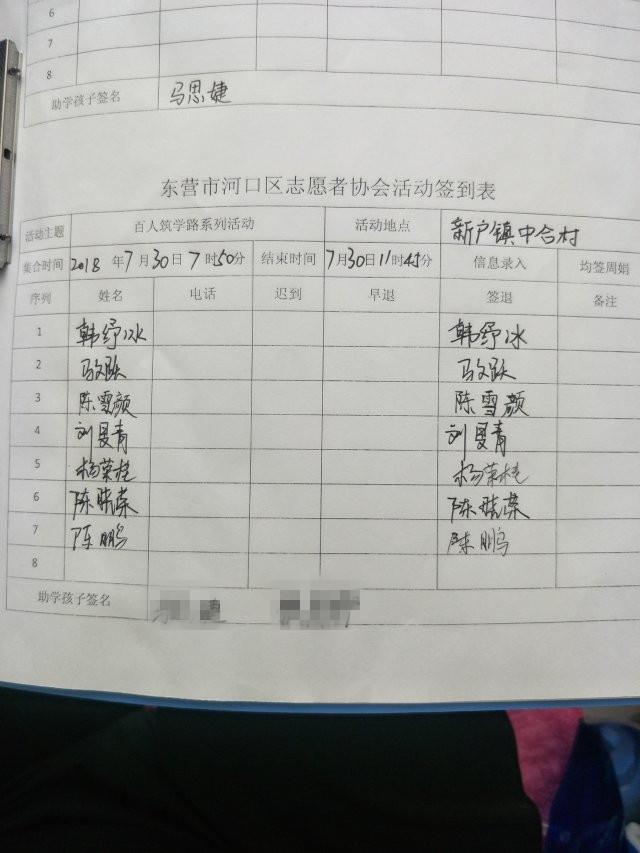 6
7
8
助学孩子签名 马思婕
东营市河口区志愿者协会活动签到表
活动主题 百人筑学路系列活动 活动地点 新户镇中合村
集合时间 2018年7月30日7时50分 结束时间 7月30日11时45分 信息录入 均签周娟
序列 姓名 电话 迟到 早退 签退 备注
1 韩纾冰 韩纾冰
2 马文跃 马文跃
3 陈雪颜 陈雪颜
4 刘曼青 刘曼青
5 杨荣桂 杨荣桂
6 陈晓荣 陈晓荣
7 陈鹏 陈鹏
8
助学孩子签名